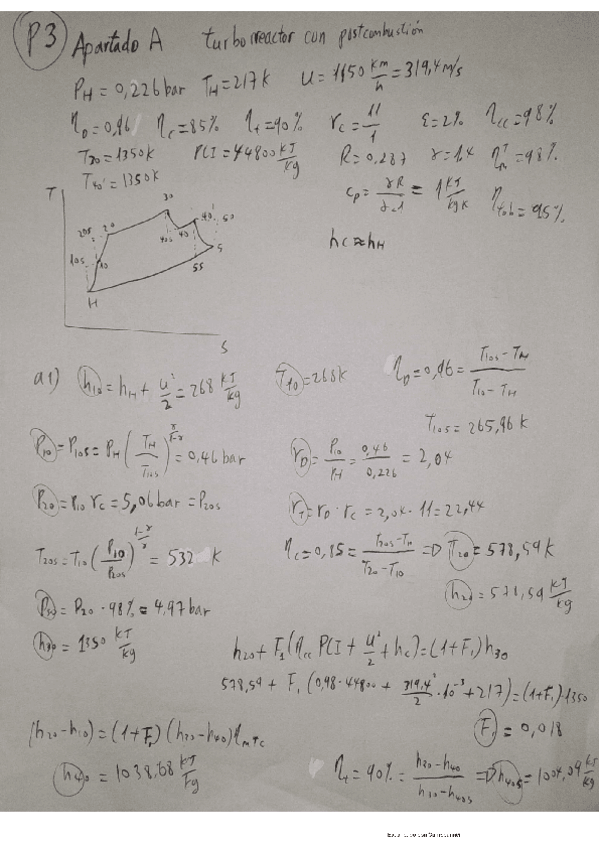 P3 Apartado A turborreactor con postcombustión
P_H = 0,226 bar T_H = 217 K U = 1150 km/h = 319,4 m/s
η_D = 0,96 η_c = 85% η_t = 90% r_c = 11/1 ε = 2% η_cc = 98%
T_30 = 1350 K PCI = 44800 kJ/kg R = 0,287 γ = 1.4 η_m^T = 98%
T_40' = 1350 K c_p = γR/γ-1 = 1 kJ/kg K η_tob = 95%
h_c ≈ h_H
T
30
20s 20 40' 50
10s 10 40s 40 5
5s
H
S
a1) h_10 = h_H + u²/2 = 268 kJ/kg T_10 = 268 K η_D = 0,96 = T_10s - T_H / T_10 - T_H
T_10s = 265,96 K
P_10 = P_10s = P_H (T_H/T_10s)^γ/1-γ = 0,46 bar r_D = P_10/P_H = 0,46/0,226 = 2,04
P_20 = P_10 r_c = 5,06 bar = P_20s r_T = r_D · r_c = 2,04 · 11 = 22,44
T_20s = T_10 (P_10/P_20s)^1-γ/γ = 532 K η_c = 0,85 = T_20s - T_H / T_20 - T_10 => T_20 = 578,59 K
h_20 = 578,59 kJ/kg
P_30 = P_20 · 98% = 4,97 bar
h_30 = 1350 kJ/kg
h_20 + F_1 (η_cc PCI + u²/2 + h_c) = (1+F_1) h_30
578,59 + F_1 (0,98·44800 + 319,4²/2 · 10^-3 + 217) = (1+F_1) · 1350
F_1 = 0,018
(h_20 - h_10) = (1+F_1) (h_30 - h_40) η_mTC
h_40 = 1038,68 kJ/kg η_t = 90% = h_30 - h_40 / h_30 - h_40s => h_40s = 1004,09 kJ/kg